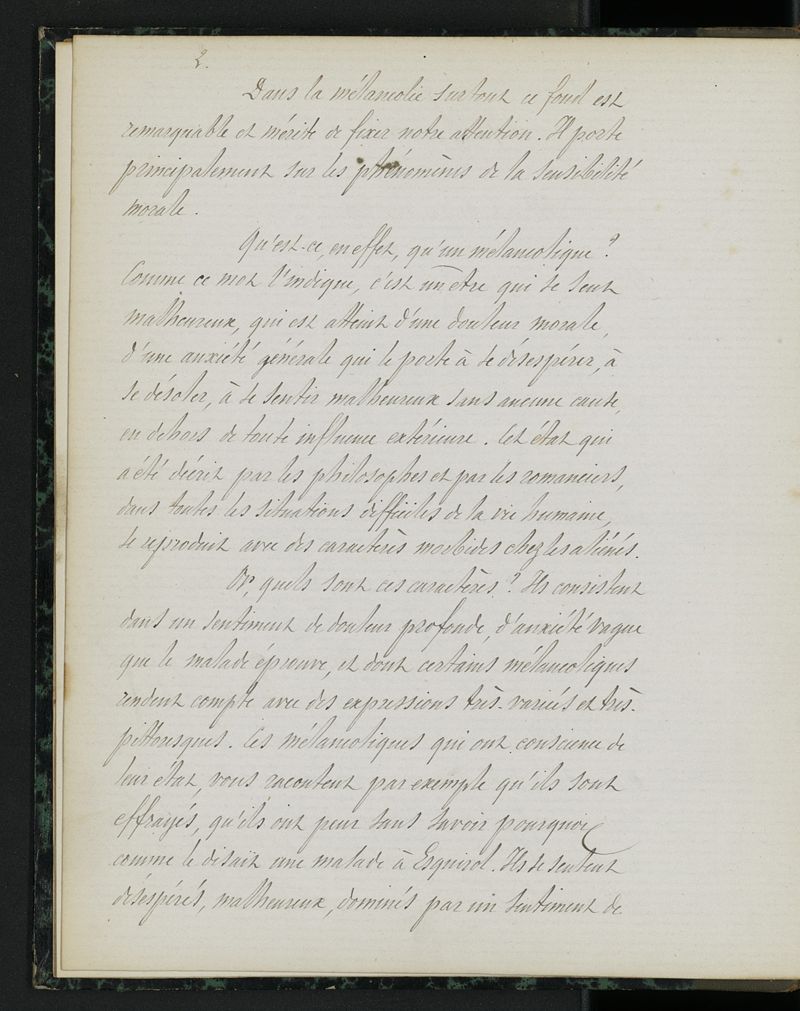 2.
Dans la mélancolie surtout ce fond est
remarquable et mérite de fixer notre attention. Il porte
principalement sur les phénomènes de la sensibilité
morale.
Qu'est-ce, en effet, qu'un mélancolique ?
Comme ce mot l'indique, c'est un être qui se sent
malheureux, qui est atteint d'une douleur morale,
d'une anxiété générale qui le porte à se désespérer, à
se désoler, à se sentir malheureux sans aucune cause,
en dehors de toute influence extérieure. Cet état qui
a été décrit par les philosophes et par les romanciers,
dans toutes les situations difficiles de la vie humaine,
se reproduit avec des caractères morbides chez les aliénés.
Or, quels sont ces caractères ? Ils consistent
dans un sentiment de douleur profonde, d'anxiété vague
que le malade éprouve, et dont certains mélancoliques
rendent compte avec des expressions très-variées et très-
pittoresques. Les mélancoliques qui ont conscience de
leur état, vous racontent par exemple qu'ils sont
effrayés, qu'ils ont peur sans savoir pourquoi
comme le disait une malade à Esquirol. Ils se sentent
désespérés, malheureux, dominés par un sentiment de